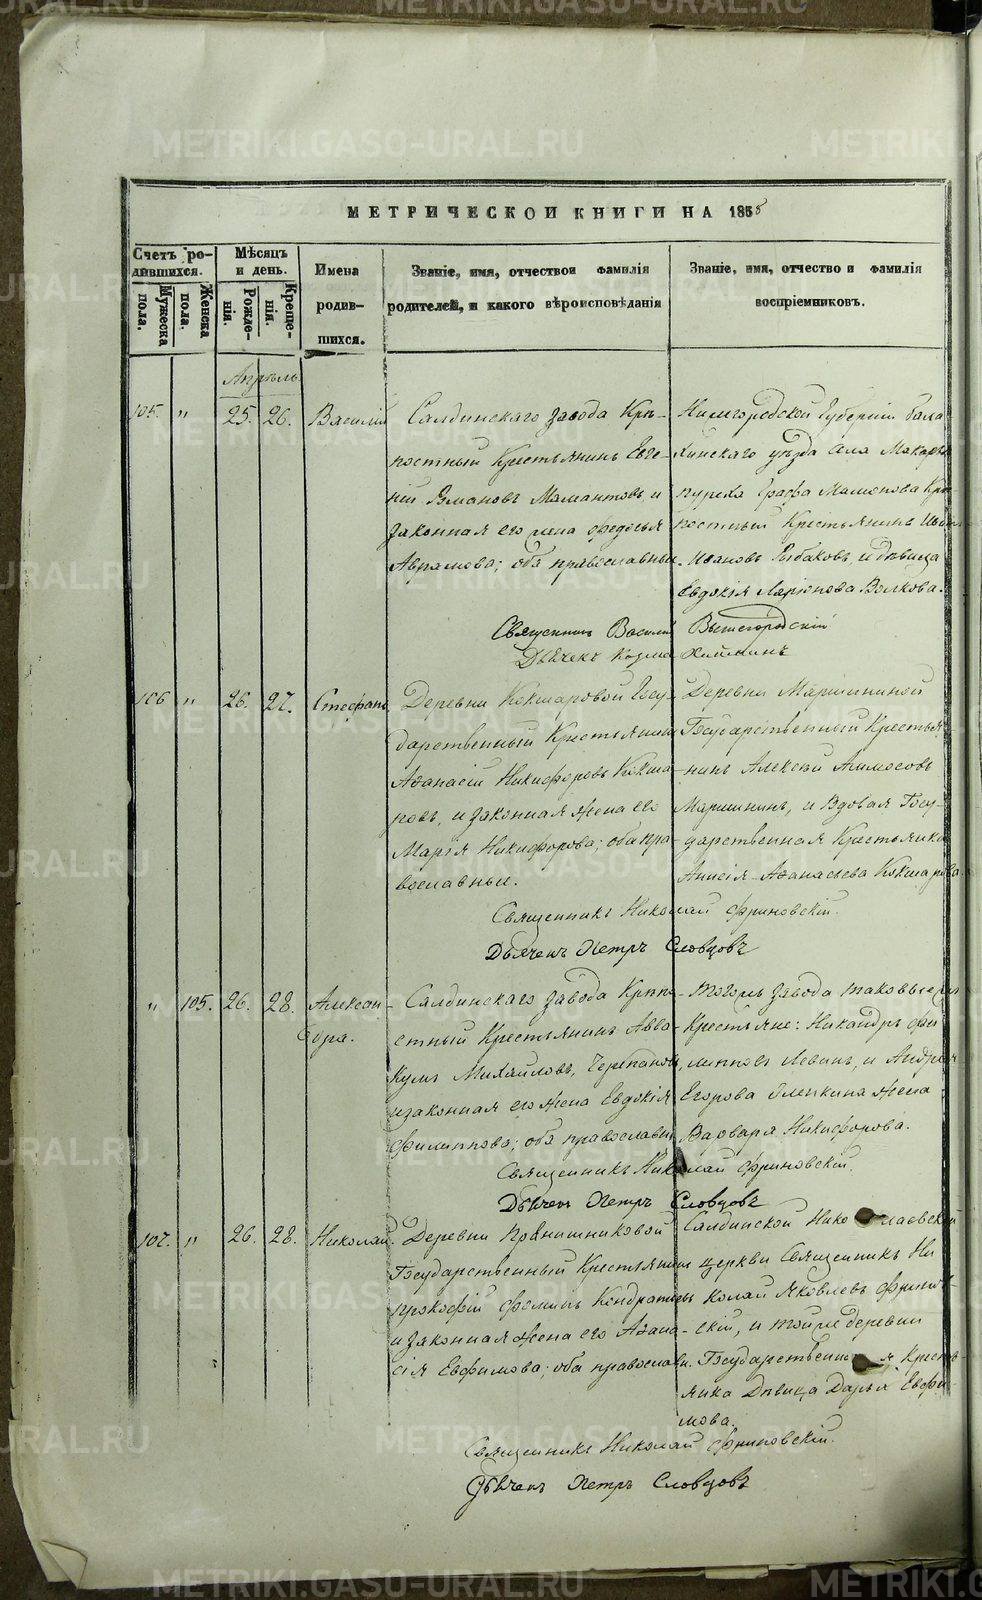 МЕТРИЧЕСКОИ КНИГИ НА 1858
Счетъ ро-
дившихся.
Мѣсяцъ
и день.
Имена
родив-
шихся.
Званіе, имя, отчествои фамилія
родителей, и какого вѣроисповѣданія
Званіе, имя, отчество и фамилія
воспріемниковъ.
Мужеска
пола.
Женска
пола.
Рожде-
нія.
Креще-
нія.
Апрѣль.
105. " 25. 26. Василій
Салдинскаго завода Крѣ-
постный Крестьянинъ Евге-
ній Романовъ Мамантовъ и
законная его жена Федосья
Аврамова; оба православные.
Нижегородской Губерніи Бала-
хинскаго уѣзда села Макарья
пуреха Графа Мамонова Крѣ-
постный Крестьянинъ
Ивановъ Рыбаковъ, и дѣвица
Евдокія Ларіонова Волкова.
Священникъ Василій Вышегородскій
Дьячекъ Козма
106 " 26. 27. Стефанъ
Деревни Кокшаровой Госу-
дарственный Крестьянинъ
Аѳанасій Никифоровъ Кокша-
ровъ, и законная жена его
Марія Никифорова; оба пра-
вославные.
Деревни Маришниной
Государственный Крестья-
нинъ Алексѣй
Маришнинъ, и вдовая Госу-
дарственная Крестьянка
Анисія Аѳанасьева Кокшарова.
Священникъ Николай Фриновскій.
Дьячекъ Петръ Словцовъ
" 105. 26. 28. Алексан-
дра.
Салдинскаго завода Крѣпо-
стный Крестьянинъ Авва-
кумъ Михайловъ, Черепановъ,
и законная его жена Евдокія
Филиппова; оба православны
Тогожъ завода таковые же
Крестьяне: Никандръ Фи-
липповъ Левинъ, и Андрея
Егорова жена
Варвара Никифорова.
Священникъ Николай Фриновскій.
Дьячекъ Петръ Словцовъ
107. " 26. 28. Николай.
Деревни Прянишниковой
Государственный Крестьянинъ
Прокофій Фоминъ Кондратьевъ
и законная жена его Аѳана-
сія Евфимова; оба православн.
Салдинской Николаевской
церкви Священникъ Ни
колай Яковлевъ Фринов-
скій, и той же деревни
Государственная Кресть
янка Дѣвица Дарья Евфи-
мова.
Священникъ Николай Фриновскій.
Дьячекъ Петръ Словцовъ
METRIKI.GASO-URAL.RU